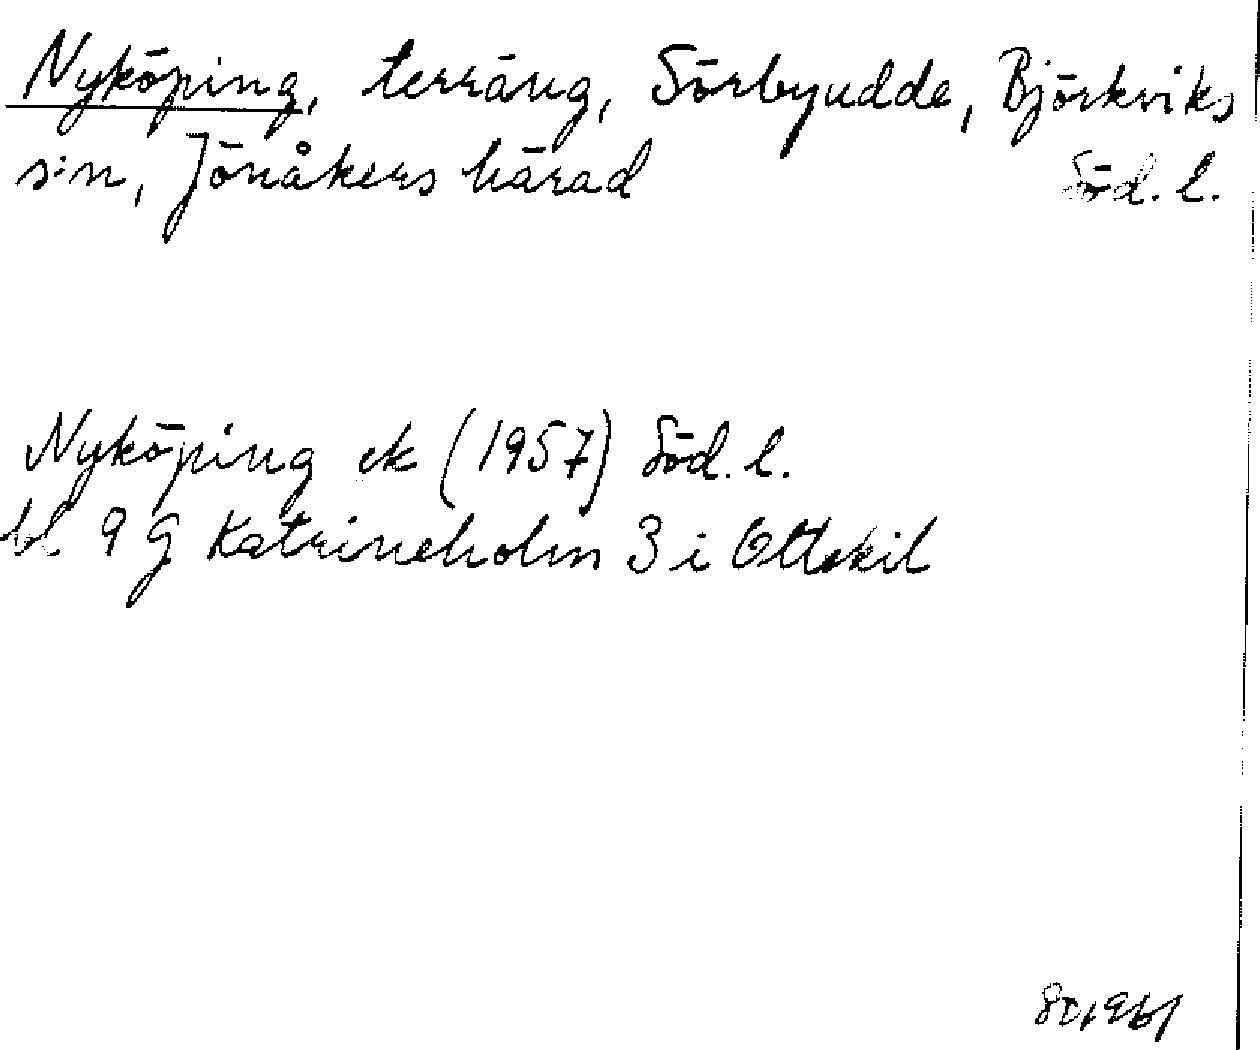 Nyköping, terräng, Sörbyudde, Björkviks
s:n, Jönåkers härad Söd. l.
Nyköping ek (1957) Söd. l.
bl 9 G Katrineholm 3 i Ottekil